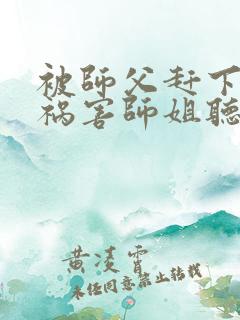 被師父赶下
祸害師姐聽
黄凌霄
未任同意禁止转载